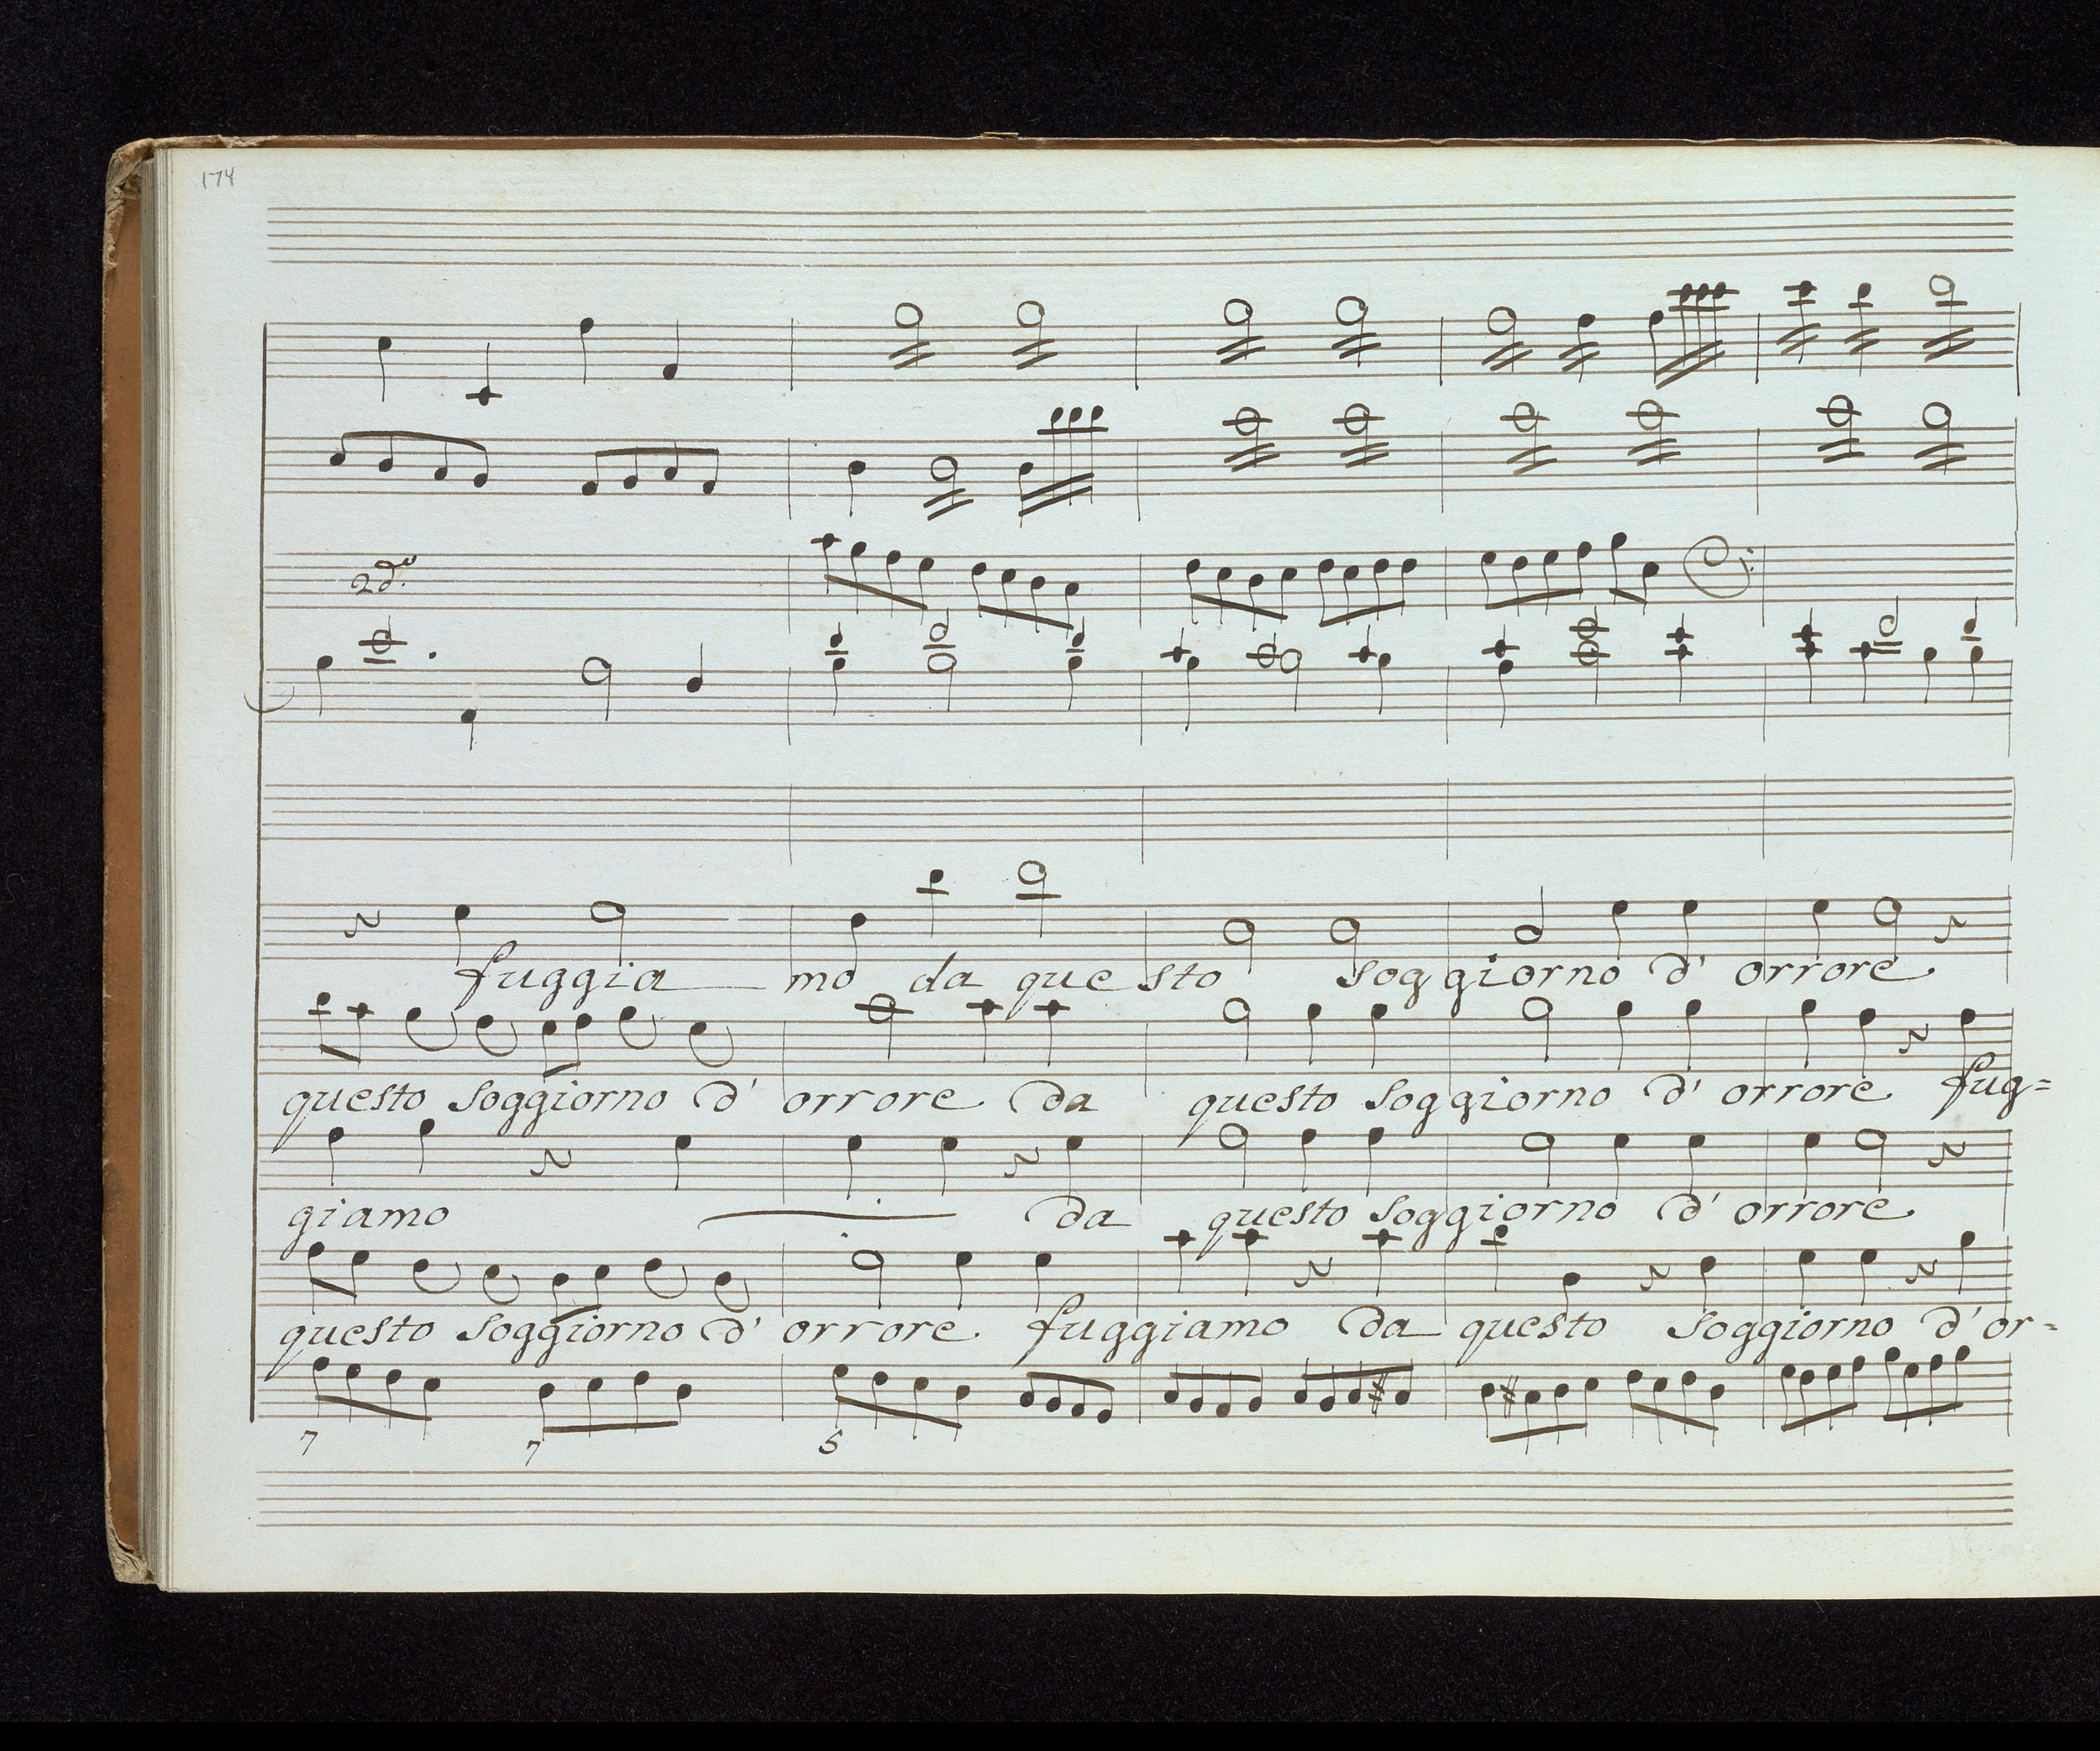 174
2do.
fuggia mo da questo soggiorno d' orrore
questo soggiorno d' orrore da questo soggiorno d' orrore fug=
giamo da questo soggiorno d' orrore
questo soggiorno d' orrore fuggiamo da questo soggiorno d' or=
7 7 5